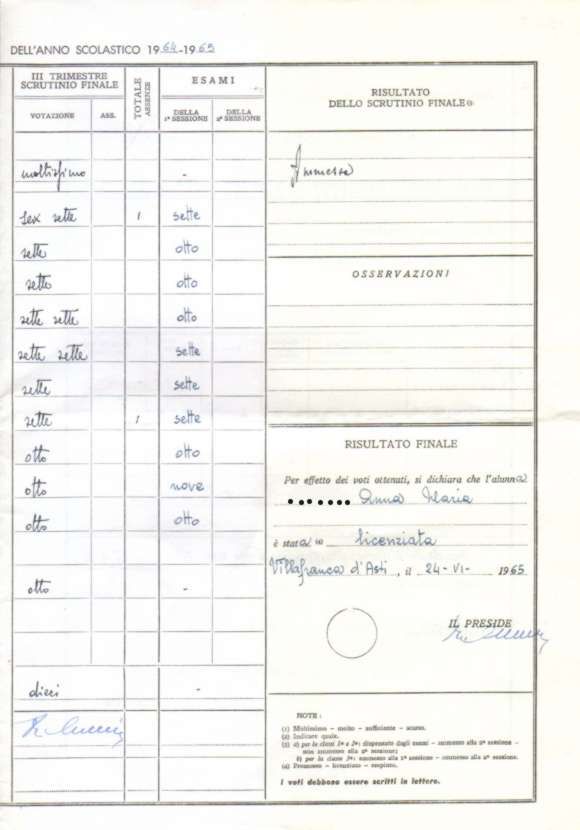 DELL'ANNO SCOLASTICO 1964-1965
III TRIMESTRE
SCRUTINIO FINALE
VOTAZIONE
ASS.
TOTALE
ASSENZE
ESAMI
DELLA
1ª SESSIONE
DELLA
2ª SESSIONE
RISULTATO
DELLO SCRUTINIO FINALE
moltissimo -
Ammessa
sex sette 1 sette
sette otto
sette otto
OSSERVAZIONI
sette sette otto
sette sette sette
sette sette
sette 1 sette
RISULTATO FINALE
otto otto
Per effetto dei voti ottenuti, si dichiara che l'alunna
otto nove
Anna Maria
otto otto
è stata licenziata
Villafranca d'Asti, il 24-VI- 1965
otto -
IL PRESIDE
dieci -
NOTE:
(1) Moltissimo - molto - sufficiente - scarso.
(2) Indicare quale.
(3) a) per le classi 1ª e 2ª: dispensato dagli esami - ammesso alla 2ª sessione -
non ammesso alla 2ª sessione;
b) per la classe 3ª: ammesso alla 1ª sessione - ammesso alla 2ª sessione.
(4) Promosso - licenziato - respinto.
I voti debbono essere scritti in lettere.